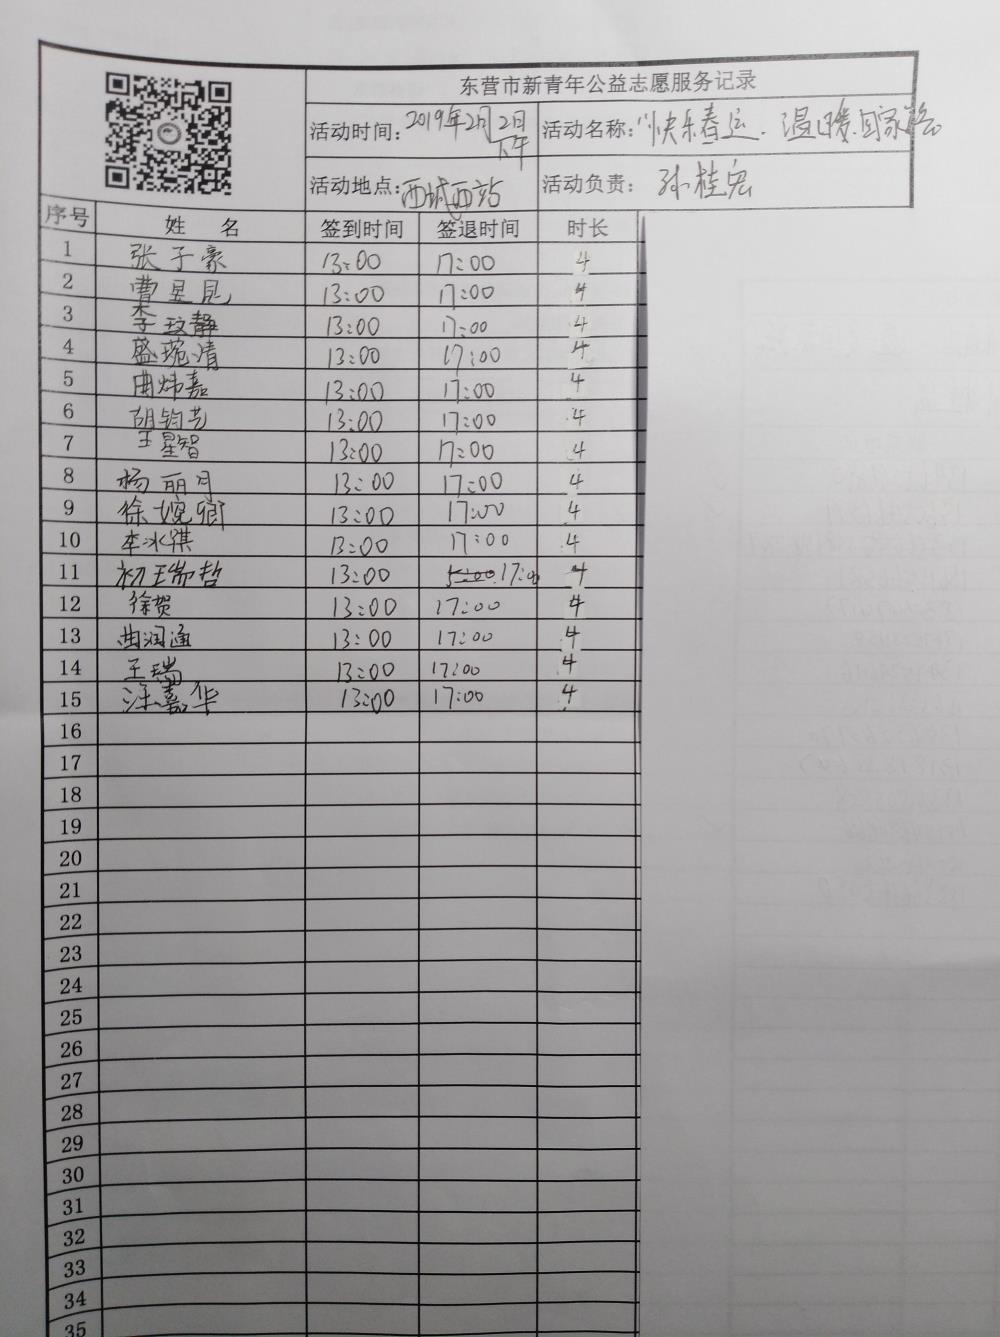 东营市新青年公益志愿服务记录
活动时间: 2019年2月2日下午 活动名称: "快乐春运.温暖回家路
活动地点: 西城西站 活动负责: 孙桂宏
序号 姓 名 签到时间 签退时间 时长
1 张子豪 13:00 17:00 4
2 曹昱昆 13:00 17:00 4
3 李玟静 13:00 17:00 4
4 盛琬清 13:00 17:00 4
5 曲炜嘉 13:00 17:00 4
6 胡钧艺 13:00 17:00 4
7 王星智 13:00 17:00 4
8 杨丽月 13:00 17:00 4
9 徐婉卿 13:00 17:00 4
10 李冰祺 13:00 17:00 4
11 初瑞哲 13:00 5:00 17:00 4
12 徐贺 13:00 17:00 4
13 曲润通 13:00 17:00 4
14 王瑞 13:00 17:00 4
15 汪嘉华 13:00 17:00 4
16
17
18
19
20
21
22
23
24
25
26
27
28
29
30
31
32
33
34
35